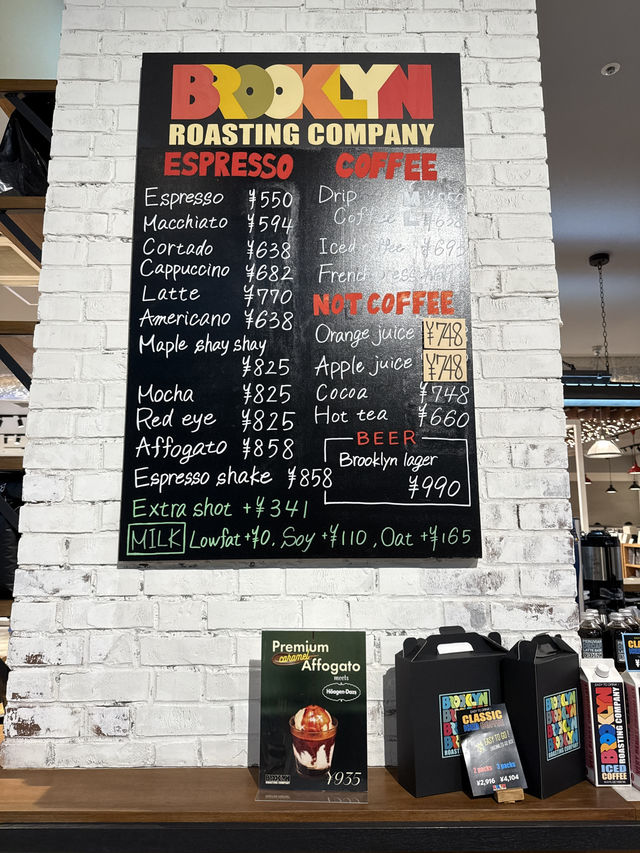 BROOKLYN
ROASTING COMPANY
ESPRESSO
Espresso ¥550
Macchiato ¥594
Cortado ¥638
Cappuccino ¥682
Latte ¥770
Americano ¥638
Maple shay shay
¥825
Mocha ¥825
Red eye ¥825
Affogato ¥858
Espresso shake ¥858
COFFEE
Drip M
Coffee L
Iced
French
NOT COFFEE
Orange juice ¥748
Apple juice ¥748
Cocoa ¥748
Hot tea ¥660
BEER
Brooklyn lager
¥990
Extra shot +¥341
MILK Lowfat +¥0, Soy +¥110, Oat +¥165
Premium
caramel
Affogato
meets
Häagen-Dazs
BROOKLYN
ROASTING COMPANY
¥935
BROOKLYN
CLASSIC
EASY TO GO!
2 packs 3 packs
¥2,916 ¥4,104
BROOKLYN
ROASTING
COMPANY
BROOKLYN
ROASTING COMPANY
ICED
COFFEE